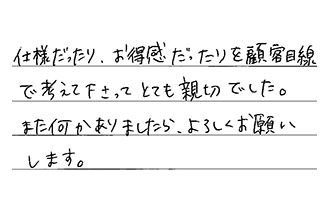 仕様だったり、お得感だったりを顧客目線
で考えて下さってとても親切でした。
また何かありましたら、よろしくお願い
します。